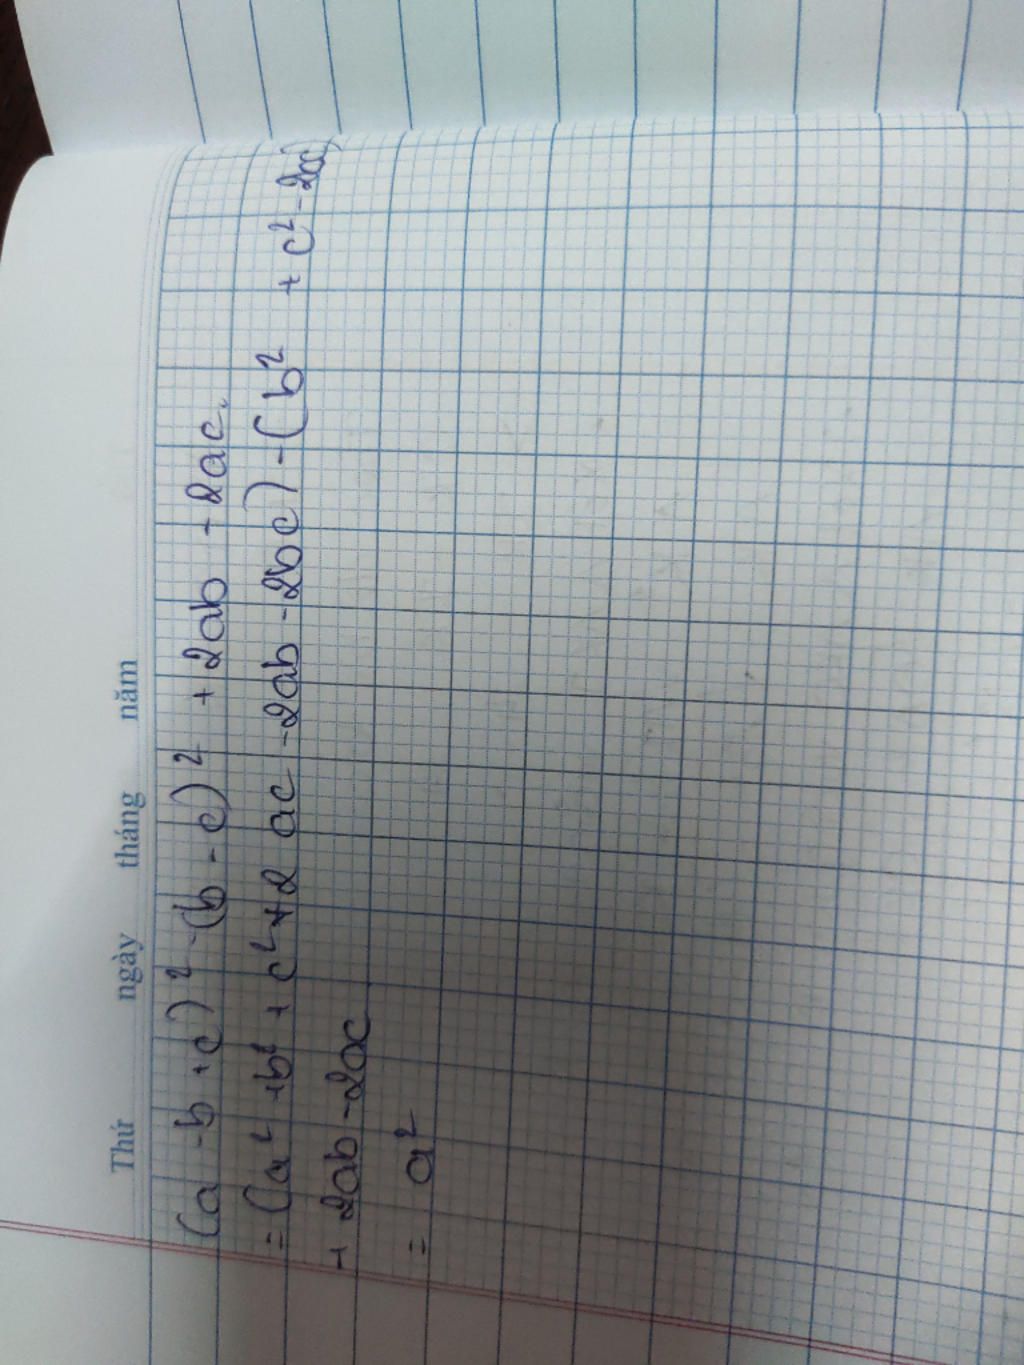 Thứ ngày tháng năm
(a - b + c)² - (b - c)² + 2ab - 2ac.
= (a² + b² + c² + 2ac - 2ab - 2bc) - (b² + c² - 2bc)
+ 2ab - 2ac
= a²